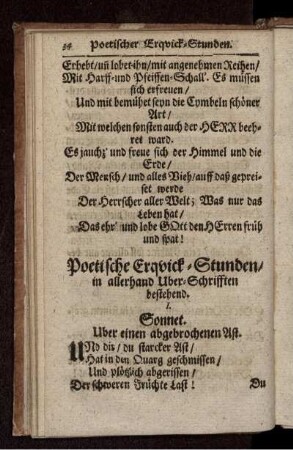 34 Poetischer Erqvick-Stunden.
Erhebt/ uñ lobet ihn/ mit angenehmen Reihen/
Mit Harff-und Pfeiffen-Schall'. Es müssen
sich erfreuen/
Und mit bemühet seyn die Cymbeln schöner
Art/
Mit welchen sonsten auch der HERR beeh-
ret ward.
Es jauchz' und freue sich der Himmel und die
Erde/
Der Mensch/ und alles Vieh/ auff daß geprei-
set werde
Der Herrscher aller Welt; Was nur das
Leben hat/
Das ehr' und lobe GOtt den HErren früh
und spat!
Poetische Erqvick-Stunden/
in allerhand Uber-Schrifften
bestehend.
1.
Sonnet.
Uber einen abgebrochenen Ast.
UNd du/ du starcker Ast/
Hat in den Quarg geschmissen/
Und plötzlich abgerissen/
Der schweren Früchte Last!
Du